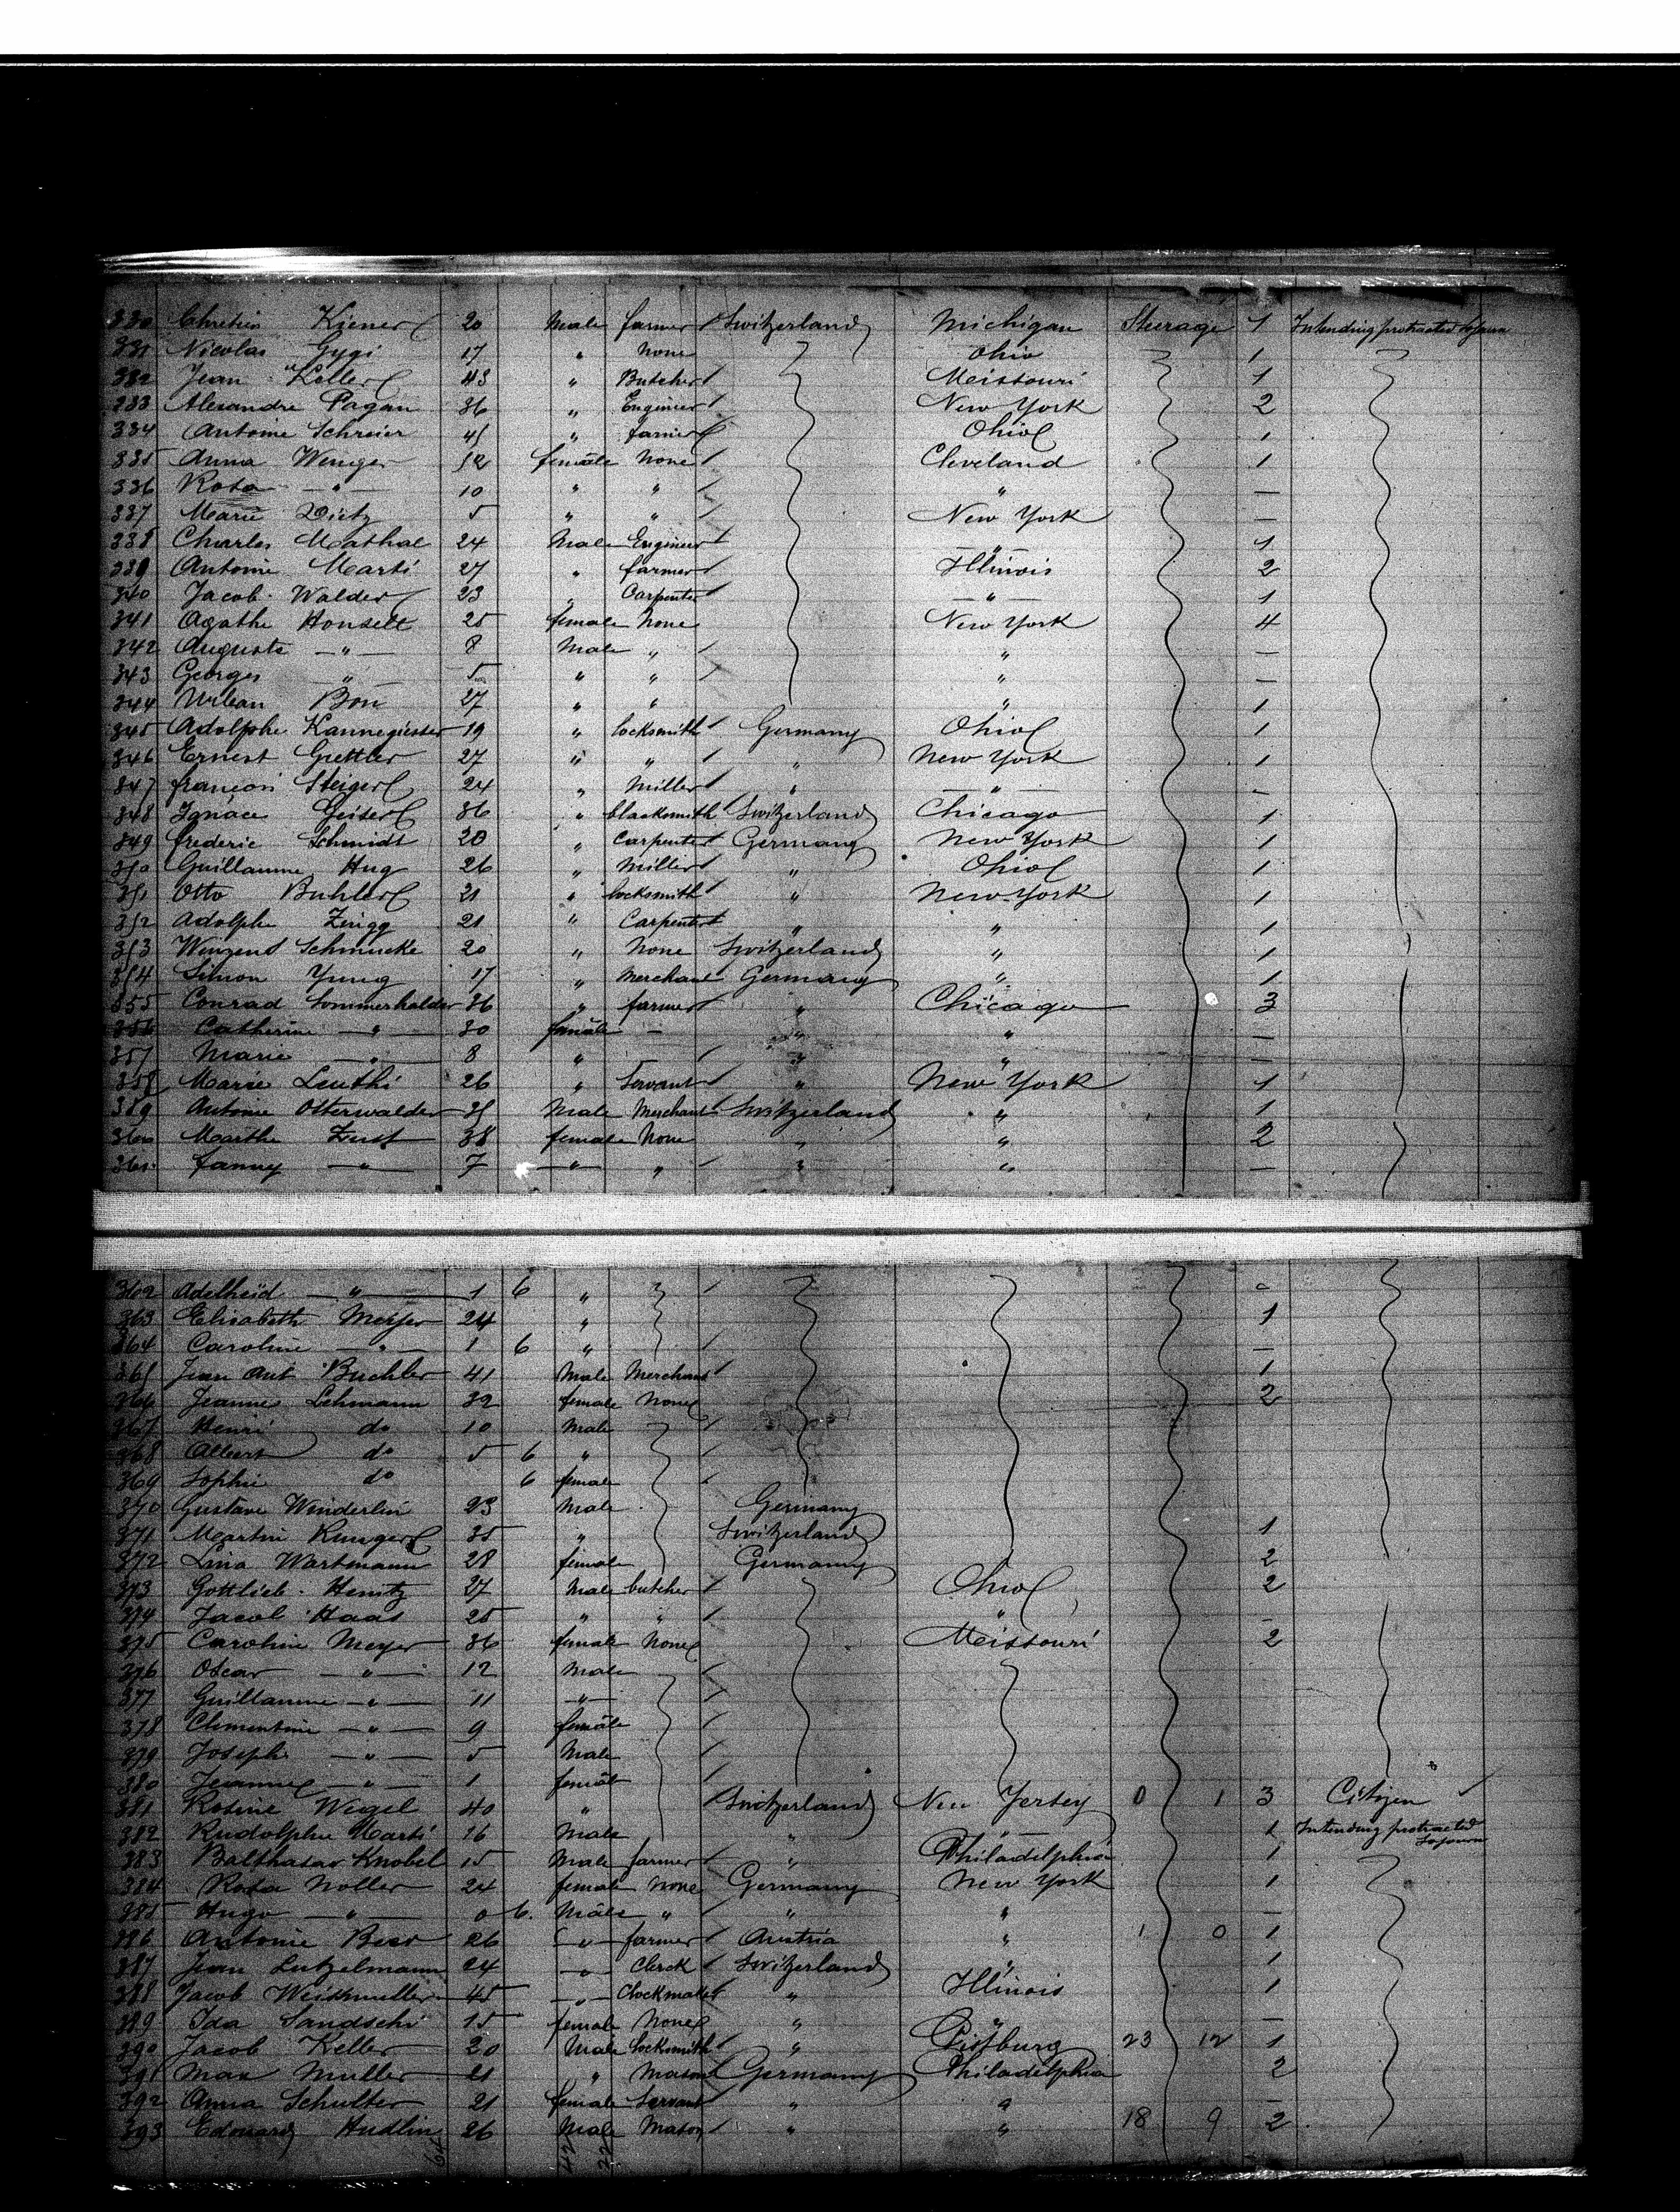 330 Chretien Kiener 20 Male farmer Switzerland Michigan Steerage 1 Intending protracted sojourn
331 Nicolas Gygi 17 " None Ohio 1
332 Jean Koller 43 " Butcher Meissouri 1
333 Alexandre Pagan 36 " Engineer New York 2
334 Antoine Schreier 45 " farmer Ohio 1
335 Anna Wenger 52 female None Cleveland 1
336 Rosa " 10 " " " —
337 Marie Dietz 5 " " New York —
338 Charles Mathal 24 Male Engineer " 1
339 Antoine Marti 27 " farmer Illinois 2
340 Jacob Walder 23 " Carpenter " 1
341 Agathe 25 female None New York 4
342 Auguste " 8 Male " " —
343 Georges " 5 " " " —
344 Urban Bon 27 " " " 1
345 Adolphe Kannegiesser 19 " locksmith Germany Ohio 1
346 Ernest Grettler 27 " " " New York 1
347 françois Steiger 24 " Miller " " —
348 Ignace Geiser 36 " blacksmith Switzerland Chicago 1
349 frederic Schmidt 20 " Carpenter Germany New York 1
350 Guillaume Hug 26 " Miller " Ohio 1
351 Otto Buhler 21 " locksmith " New York 1
352 Adolphe Zingg 21 " Carpenter " " 1
353 Winzend Schmucke 20 " None Switzerland " 1
354 Simon Yung 17 " Merchant Germany " 1
355 Conrad Sommerhalder 36 " farmer " Chicago 3
356 Catherine " 30 female — " " —
357 Marie " 8 " " " —
358 Marie Leuthi 26 " Servant " New York 1
359 Antoine Osterwalder 35 Male Merchant Switzerland " 1
360 Marthe Zust 38 female None " " 2
361 fanny " 7 " " " " —
362 Adelheid " 1 6 " —
363 Elisabeth Meyer 24 " 1
364 Caroline " 1 6 " —
365 Jean Ant Buchler 41 Male Merchant 1
366 Jeanne Lehmann 32 female None 2
367 Henri do 10 Male
368 Albert do 5 6 "
369 Sophie do 6 female
370 Gustave Winderlin 23 Male Germany
371 Martin Kunger 35 " Switzerland 1
372 Lina Wartmann 28 female Germany 2
373 Gottlieb Hemitz 27 Male butcher Ohio 2
374 Jacob Haas 25 " " " —
375 Caroline Meyer 36 female None Meissouri 2
376 Oscar " 12 Male
377 Guillaume " 11 "
378 Clementine " 9 female
379 Joseph " 5 Male
380 Jeanne " 1 female
381 Rosine Weigel 40 " Switzerland New Jersey 0 1 3 Citizen
382 Rudolphe Marti 16 Male " " 1 Intending protracted sojourn
383 Balthasar Knobel 15 Male farmer " Philadelphia 1
384 Rosa Noller 24 female None Germany New York 1
385 Hugo " 0 6. Male " " " —
386 Antoine Beer 26 " farmer Austria " 1 0 1
387 Jean Lutzelmann 24 " Clerck Switzerland " 1
388 Jacob Weismuller 45 " Clockmaker " Illinois 1
389 Ida Sandschi 15 female None " " —
390 Jacob Keller 20 Male locksmith " Pistburg 23 12 1
391 Max Muller 21 " Mason Germany Philadelphia 2
392 Anna Schulter 21 female Servant " " —
393 Edouard Hudlin 26 Male Mason " " 18 9 2
64 42 22